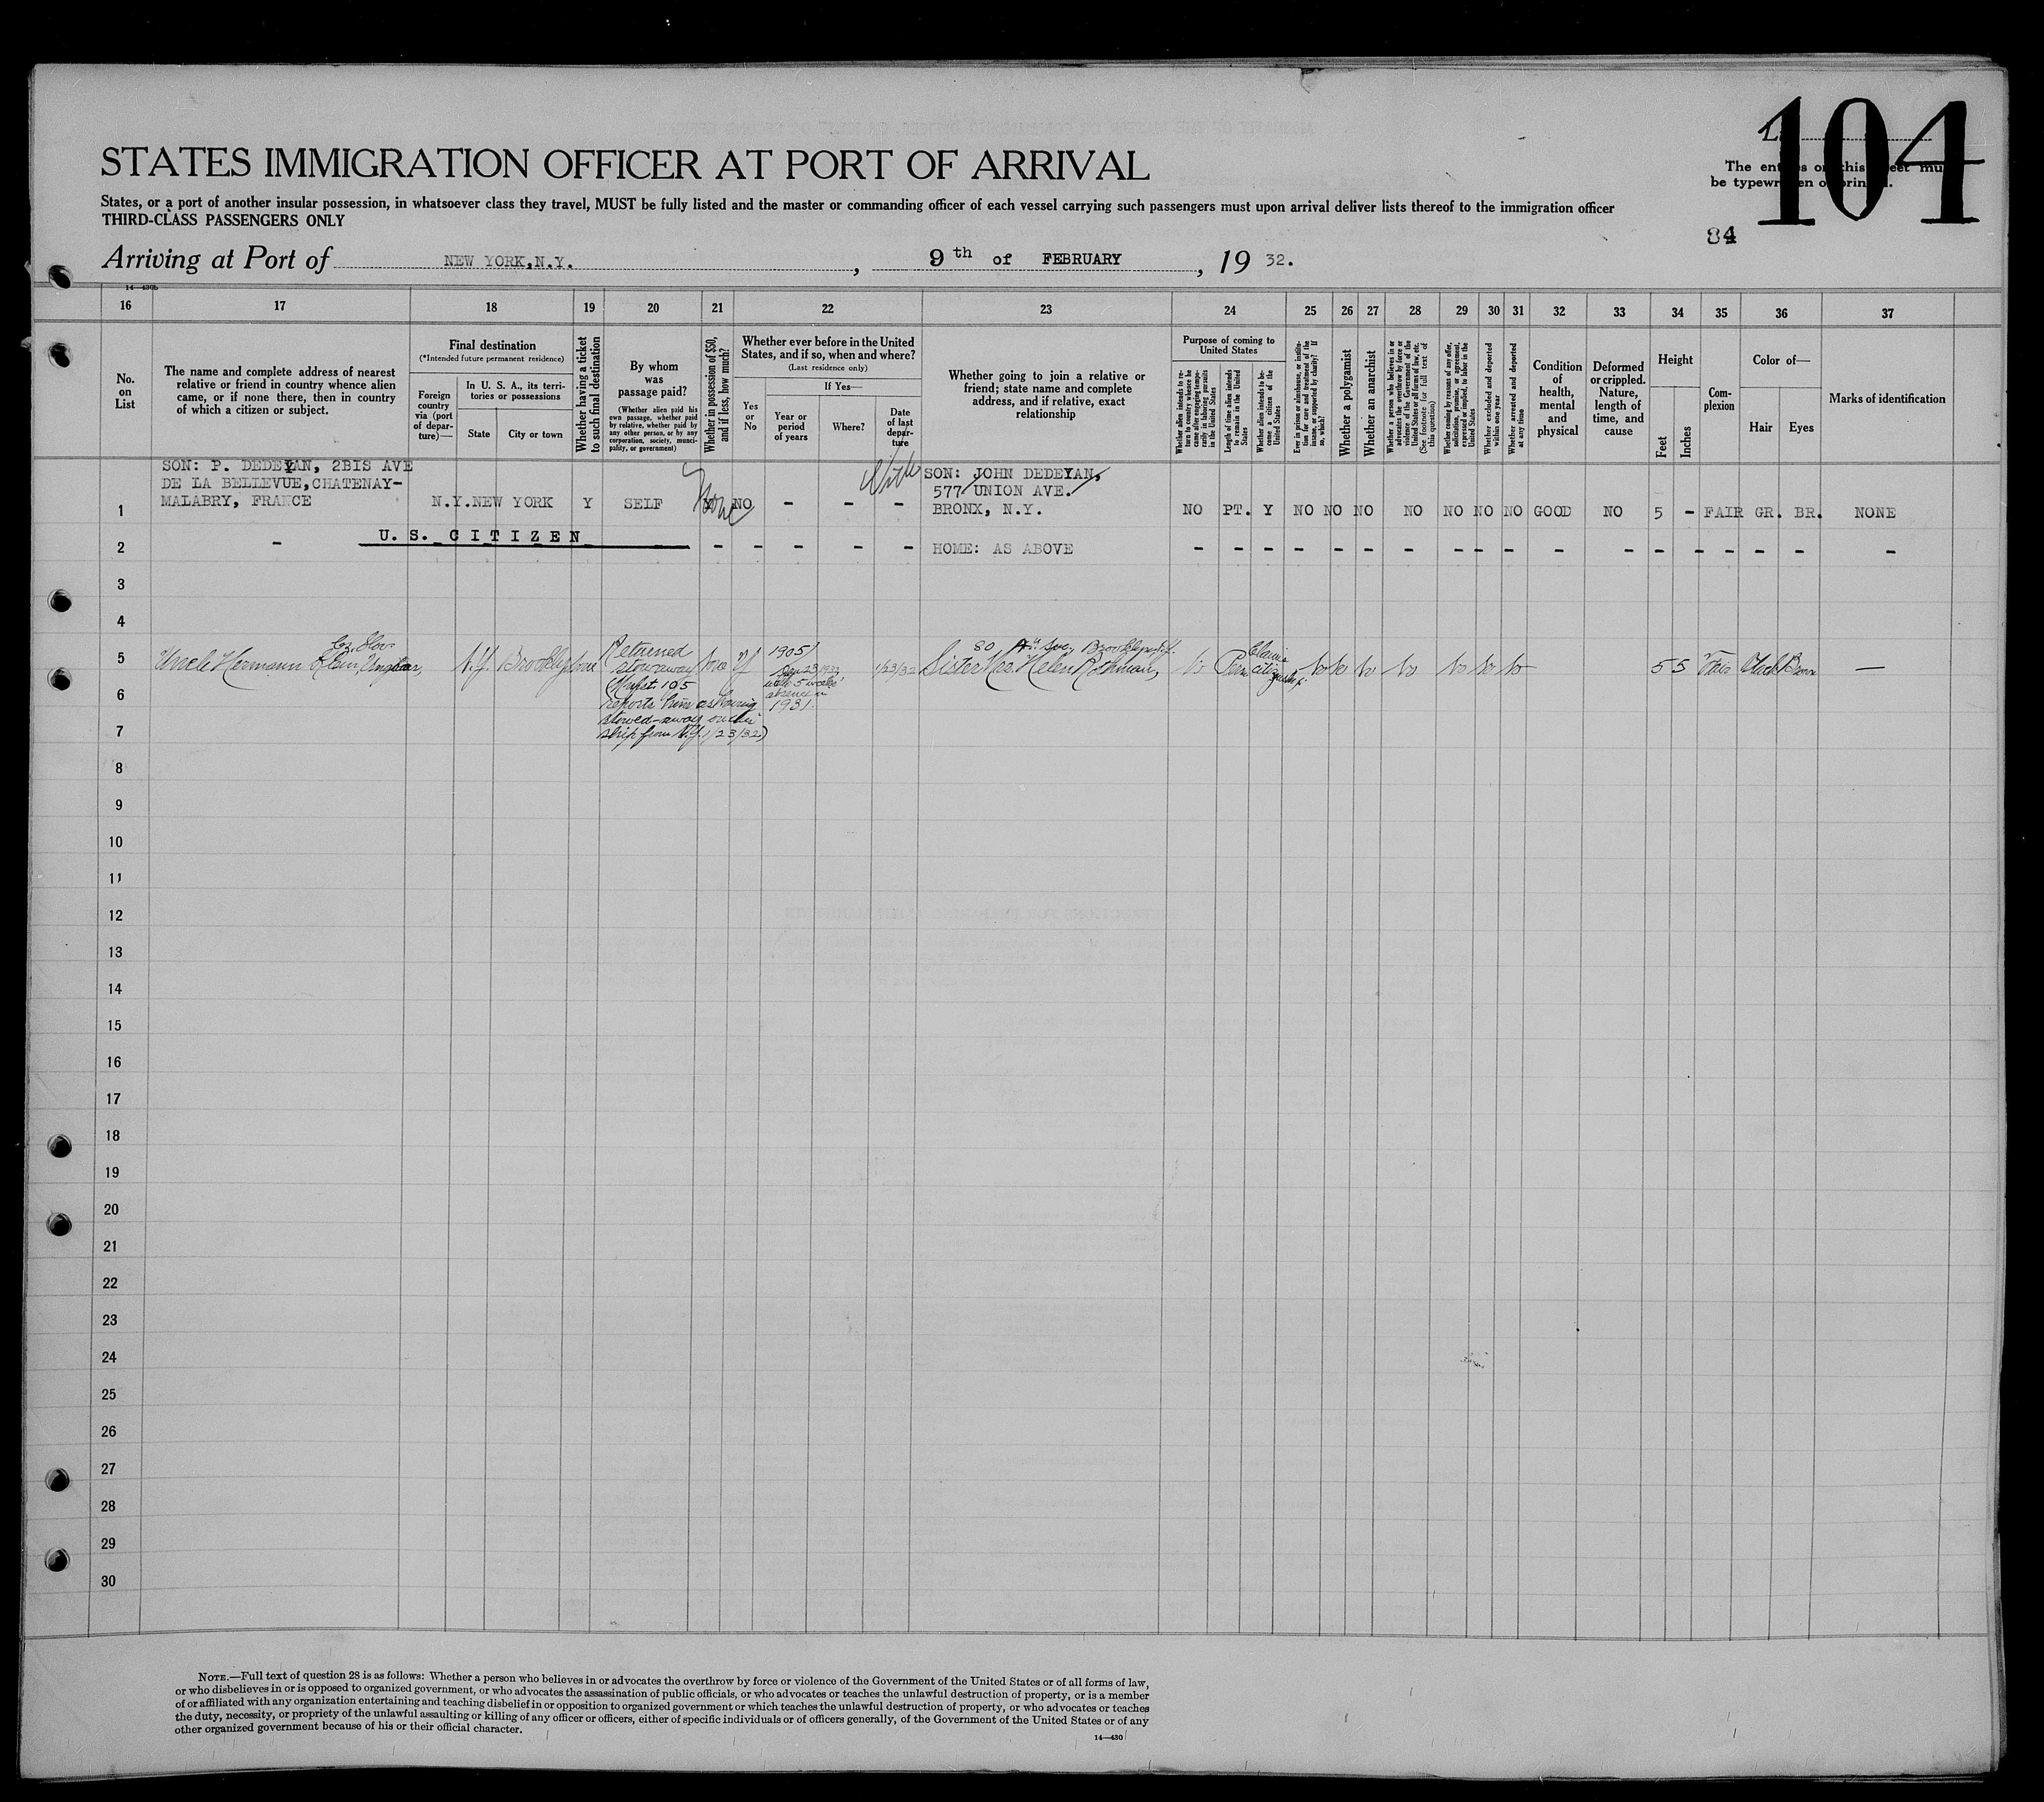 104
L
The entries on this sheet must
be typewritten or printed.
84
STATES IMMIGRATION OFFICER AT PORT OF ARRIVAL
States, or a port of another insular possession, in whatsoever class they travel, MUST be fully listed and the master or commanding officer of each vessel carrying such passengers must upon arrival deliver lists thereof to the immigration officer
THIRD-CLASS PASSENGERS ONLY
Arriving at Port of NEW YORK, N.Y. , 9th of FEBRUARY , 19 32.
14—430b
16 17 18 19 20 21 22 23 24 25 26 27 28 29 30 31 32 33 34 35 36 37
No. on List
The name and complete address of nearest relative or friend in country whence alien came, or if none there, then in country of which a citizen or subject.
Final destination
(*Intended future permanent residence)
Foreign country via (port of departure)—
In U. S. A., its territories or possessions
State
City or town
Whether having a ticket to such final destination
By whom was passage paid?
(Whether alien paid his own passage, whether paid by relative, whether paid by any other person, or by any corporation, society, municipality, or government)
Whether in possession of $50, and if less, how much?
Whether ever before in the United States, and if so, when and where?
(Last residence only)
Yes or No
If Yes—
Year or period of years
Where?
Date of last departure
Whether going to join a relative or friend; state name and complete address, and if relative, exact relationship
Purpose of coming to United States
Whether alien intends to return to country whence he came after engaging temporarily in laboring pursuits in the United States
Length of time alien intends to remain in the United States
Whether alien intends to become a citizen of the United States
Ever in prison or almshouse, or institution for care and treatment of the insane, or supported by charity? If so, which?
Whether a polygamist
Whether an anarchist
Whether a person who believes in or advocates the overthrow by force or violence of the Government of the United States or all forms of law, etc. (See footnote for full text of this question)
Whether coming by reasons of any offer, solicitation, promise, or agreement, expressed or implied, to labor in the United States
Whether excluded and deported within one year
Whether arrested and deported at any time
Condition of health, mental and physical
Deformed or crippled. Nature, length of time, and cause
Height
Feet
Inches
Complexion
Color of—
Hair
Eyes
Marks of identification
SON: P. DEDEYAN, 2BIS AVE
DE LA BELLEVUE, CHATENAY-
MALABRY, FRANCE
1 N.Y. NEW YORK Y SELF None NO - - - SON: JOHN DEDEYAN,
577 UNION AVE.
BRONX, N.Y.
NO PT. Y NO NO NO NO NO NO NO GOOD NO 5 - FAIR GR. BR. NONE
2 - U. S. CITIZEN - - - - - - HOME: AS ABOVE - - - - - - - - - - - - - - - - - -
3
4
5 Uncle Hermann Klein, N.Y. Brooklyn
Returned
stowaway
(Manfst. 105
reports him as having
stowed-away on this
ship from N.Y. 1/23/32)
1905/
with 5 weeks'
absence in
1931
1/23/32
80 Ave, Brooklyn
Sister Mrs. Helen
No Perm Claims citizenship No No No No No No No 5 5 Fair Black Brown —
6
7
8
9
10
11
12
13
14
15
16
17
18
19
20
21
22
23
24
25
26
27
28
29
30
NOTE.—Full text of question 28 is as follows: Whether a person who believes in or advocates the overthrow by force or violence of the Government of the United States or of all forms of law,
or who disbelieves in or is opposed to organized government, or who advocates the assassination of public officials, or who advocates or teaches the unlawful destruction of property, or is a member
of or affiliated with any organization entertaining and teaching disbelief in or opposition to organized government or which teaches the unlawful destruction of property, or who advocates or teaches
the duty, necessity, or propriety of the unlawful assaulting or killing of any officer or officers, either of specific individuals or of officers generally, of the Government of the United States or of any
other organized government because of his or their official character.
14—430